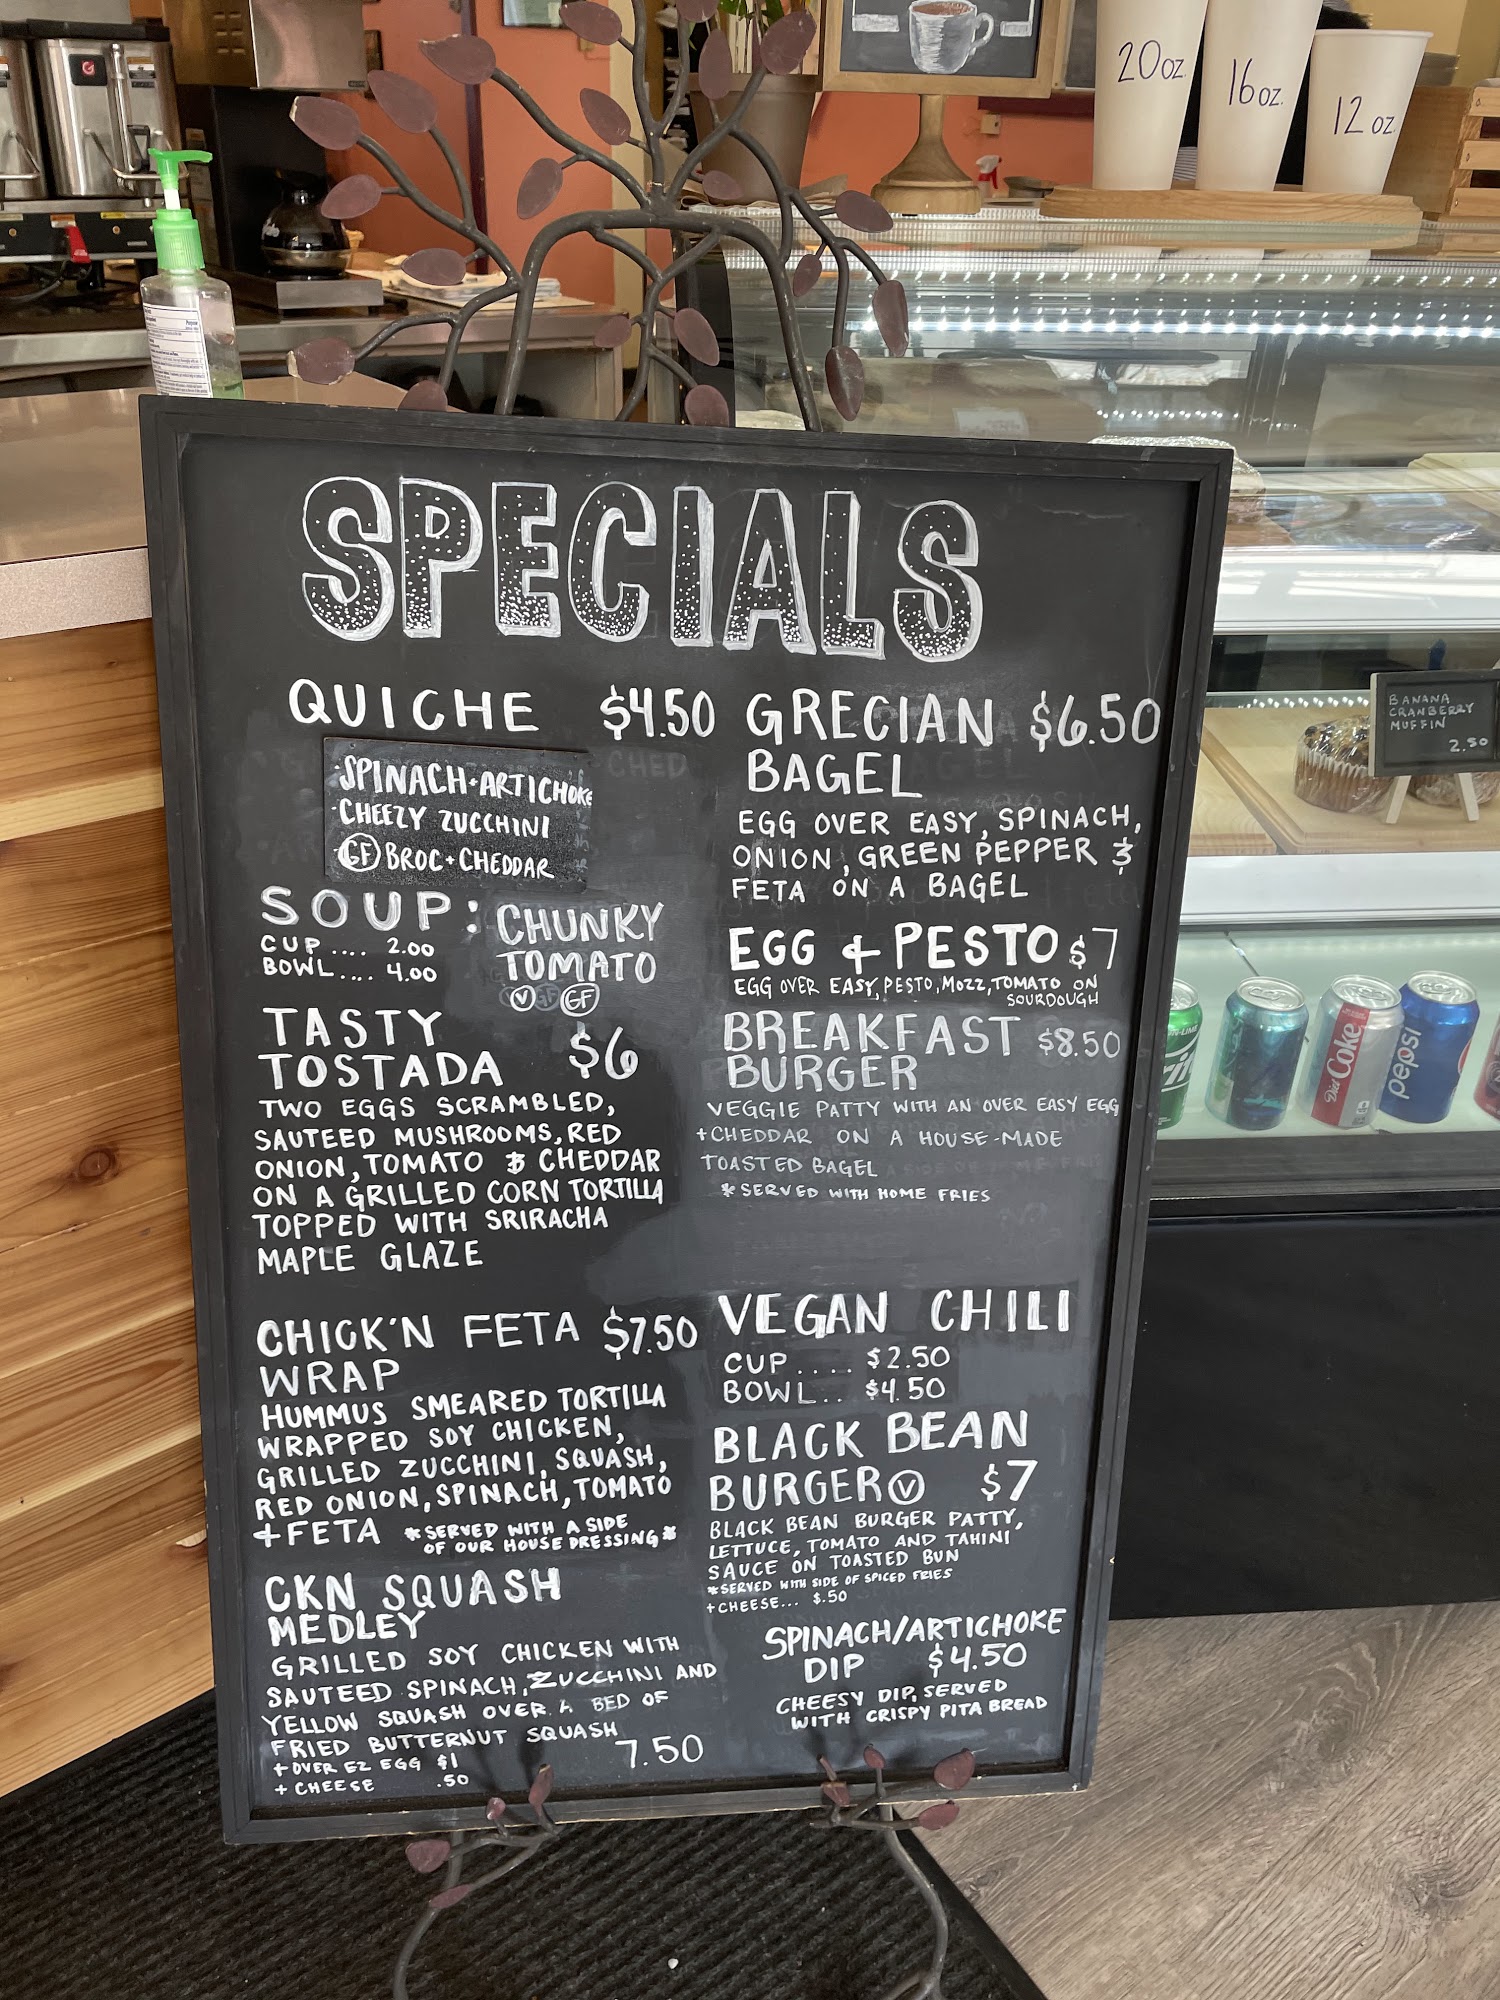 20 oz.
16 oz.
12 oz
SPECIALS
QUICHE $4.50
·SPINACH+ARTICHOKE
·CHEEZY ZUCCHINI
·GF BROC+CHEDDAR
SOUP: CHUNKY
TOMATO
V GF
CUP.... 2.00
BOWL.... 4.00
TASTY
TOSTADA $6
TWO EGGS SCRAMBLED,
SAUTEED MUSHROOMS, RED
ONION, TOMATO & CHEDDAR
ON A GRILLED CORN TORTILLA
TOPPED WITH SRIRACHA
MAPLE GLAZE
CHICK'N FETA $7.50
WRAP
HUMMUS SMEARED TORTILLA
WRAPPED SOY CHICKEN,
GRILLED ZUCCHINI, SQUASH,
RED ONION, SPINACH, TOMATO
+FETA *SERVED WITH A SIDE
OF OUR HOUSE DRESSING*
CKN SQUASH
MEDLEY
GRILLED SOY CHICKEN WITH
SAUTEED SPINACH, ZUCCHINI AND
YELLOW SQUASH OVER A BED OF
FRIED BUTTERNUT SQUASH
+OVER EZ EGG $1
+CHEESE .50
7.50
GRECIAN $6.50
BAGEL
EGG OVER EASY, SPINACH,
ONION, GREEN PEPPER &
FETA ON A BAGEL
EGG + PESTO $7
EGG OVER EASY, PESTO, MOZZ, TOMATO ON
SOURDOUGH
BREAKFAST $8.50
BURGER
VEGGIE PATTY WITH AN OVER EASY EGG
+CHEDDAR ON A HOUSE-MADE
TOASTED BAGEL
*SERVED WITH HOME FRIES
VEGAN CHILI
CUP.... $2.50
BOWL.. $4.50
BLACK BEAN
BURGER V $7
BLACK BEAN BURGER PATTY,
LETTUCE, TOMATO AND TAHINI
SAUCE ON TOASTED BUN
*SERVED WITH SIDE OF SPICED FRIES
+CHEESE... $.50
SPINACH/ARTICHOKE
DIP $4.50
CHEESY DIP, SERVED
WITH CRISPY PITA BREAD
BANANA
CRANBERRY
MUFFIN
2.50
Diet Coke
pepsi